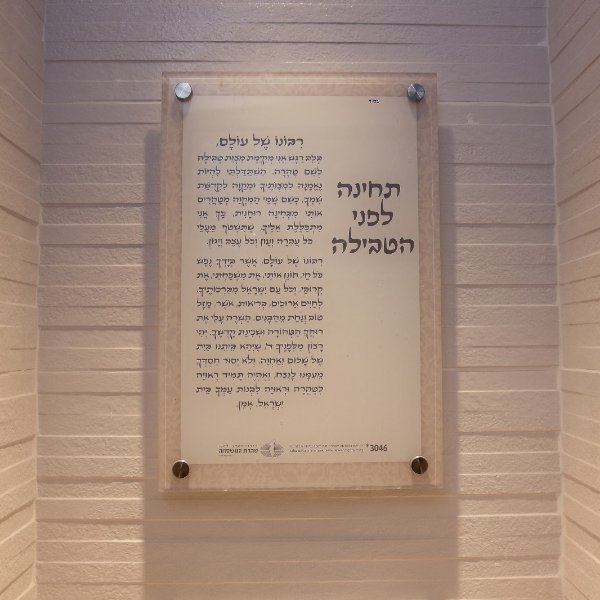 בס"ד
תחינה
לפני
הטבילה
רִבּוֹנוֹ שֶׁל עוֹלָם,
בְּלֵב רַגָּשׁ אֲנִי מְקַיֶּמֶת מִצְוַת טְבִילָה
לְשֵׁם טָהֳרָה. הִשְׁתַּדַּלְתִּי לִהְיוֹת
נֶאֱמָנָה לְמִצְווֹתֶיךָ וּמְקַוָּה לִקְדֻשַּׁת
שִׁמְךָ. כְּשֵׁם שֶׁמֵּי הַמִּקְוֶה מְטַהֲרִים
אוֹתִי מִבְּחִינָה רוּחָנִית, כָּךְ אֲנִי
מִתְפַּלֶּלֶת אֵלֶיךָ, שֶׁתִּשְׁטֹף מֵעָלַי
כָּל עֲבֵרָה וְעָוֹן וְכָל עֶצֶב וְיָגוֹן.
רִבּוֹנוֹ שֶׁל עוֹלָם, אֲשֶׁר בְּיָדְךָ נֶפֶשׁ
כָּל חַי, חוֹנֵן אוֹתִי, אֶת מִשְׁפַּחְתִּי, אֶת
קְרוֹבַי, וְכָל עַם יִשְׂרָאֵל מִבִּרְכוֹתֶיךָ,
לְחַיִּים אֲרוּכִּים, בְּרִיאוּת, אֹשֶׁר, מַזָּל
טוֹב וְנַחַת מֵהַבָּנִים. הַשְׁרֵה עָלַי אֶת
רוּחֲךָ הַטְּהוֹרָה וּשְׁכִינַת קָדְשֶׁךָ. יְהִי
רָצוֹן מִלְּפָנֶיךָ ד', שֶׁיְּהֵא בֵּיתֵנוּ בַּיִת
שֶׁל שָׁלוֹם וְאַחֲוָה, וְלֹא יָסוּר חַסְדְּךָ
מֵעִמָּנוּ לָנֶצַח, וְאֶהְיֶה תָּמִיד רְאוּיָה
לְטָהֳרָה וּרְאוּיָה לִבְנוֹת עַמְּךָ בֵּית
יִשְׂרָאֵל, אָמֵן.
טהרת המשפחה
*3046